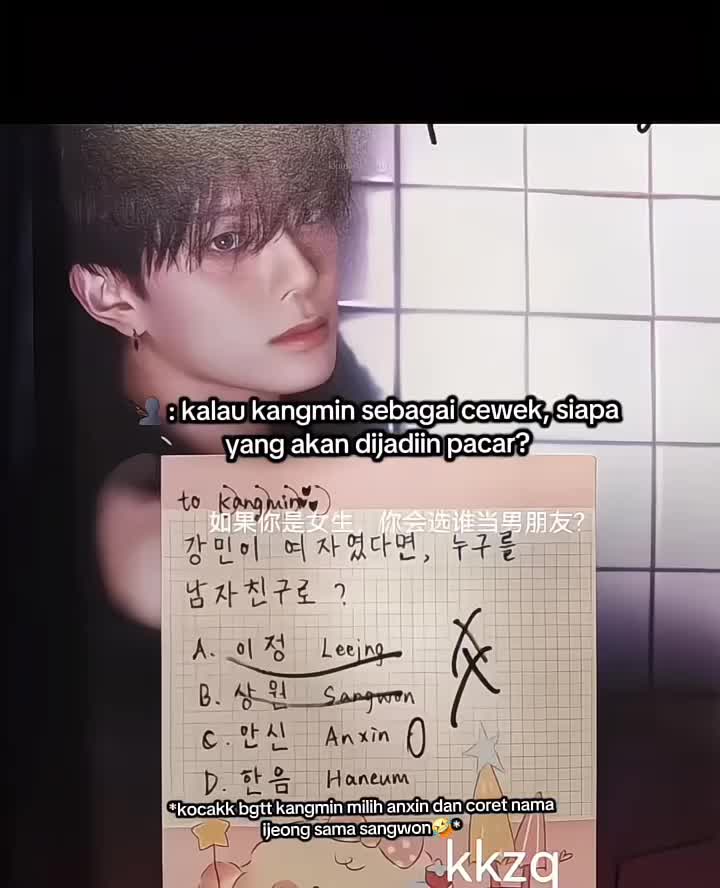 : kalau kangmin sebagai cewek, siapa
yang akan dijadiin pacar?
to kangmin
如果你是女生，你会选谁当男朋友?
강민이 여자였다면, 누구를
남자친구로 ?
A. 이정 Leejng
B. 상원 Sangwon
C. 안신 Anxin O
D. 한음 Haneum
*kocakk bgtt kangmin milih anxin dan coret nama
ijeong sama sangwon🤣*
kkzq